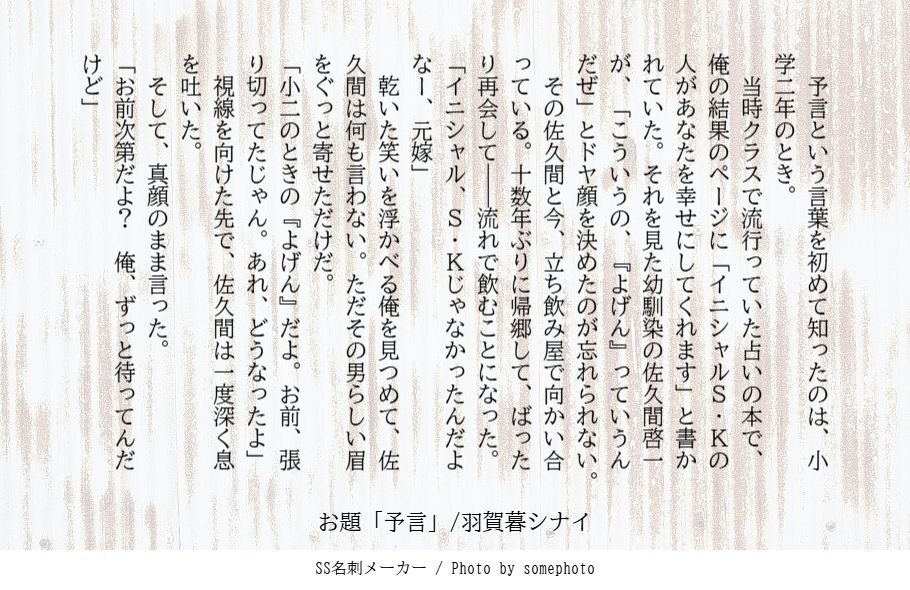 予言という言葉を初めて知ったのは、小
学二年のとき。
　当時クラスで流行っていた占いの本で、
俺の結果のページに「イニシャルＳ・Ｋの
人があなたを幸せにしてくれます」と書か
れていた。それを見た幼馴染の佐久間啓一
が、「こういうの、『よげん』っていうん
だぜ」とドヤ顔を決めたのが忘れられない。
　その佐久間と今、立ち飲み屋で向かい合
っている。十数年ぶりに帰郷して、ばった
り再会して――流れで飲むことになった。
「イニシャル、Ｓ・Ｋじゃなかったんだよ
なー、元嫁」
　乾いた笑いを浮かべる俺を見つめて、佐
久間は何も言わない。ただその男らしい眉
をぐっと寄せただけだ。
「小二のときの『よげん』だよ。お前、張
り切ってたじゃん。あれ、どうなったよ」
　視線を向けた先で、佐久間は一度深く息
を吐いた。
　そして、真顔のまま言った。
「お前次第だよ？　俺、ずっと待ってんだ
けど」
お題「予言」/羽賀暮シナイ
SS名刺メーカー / Photo by somephoto